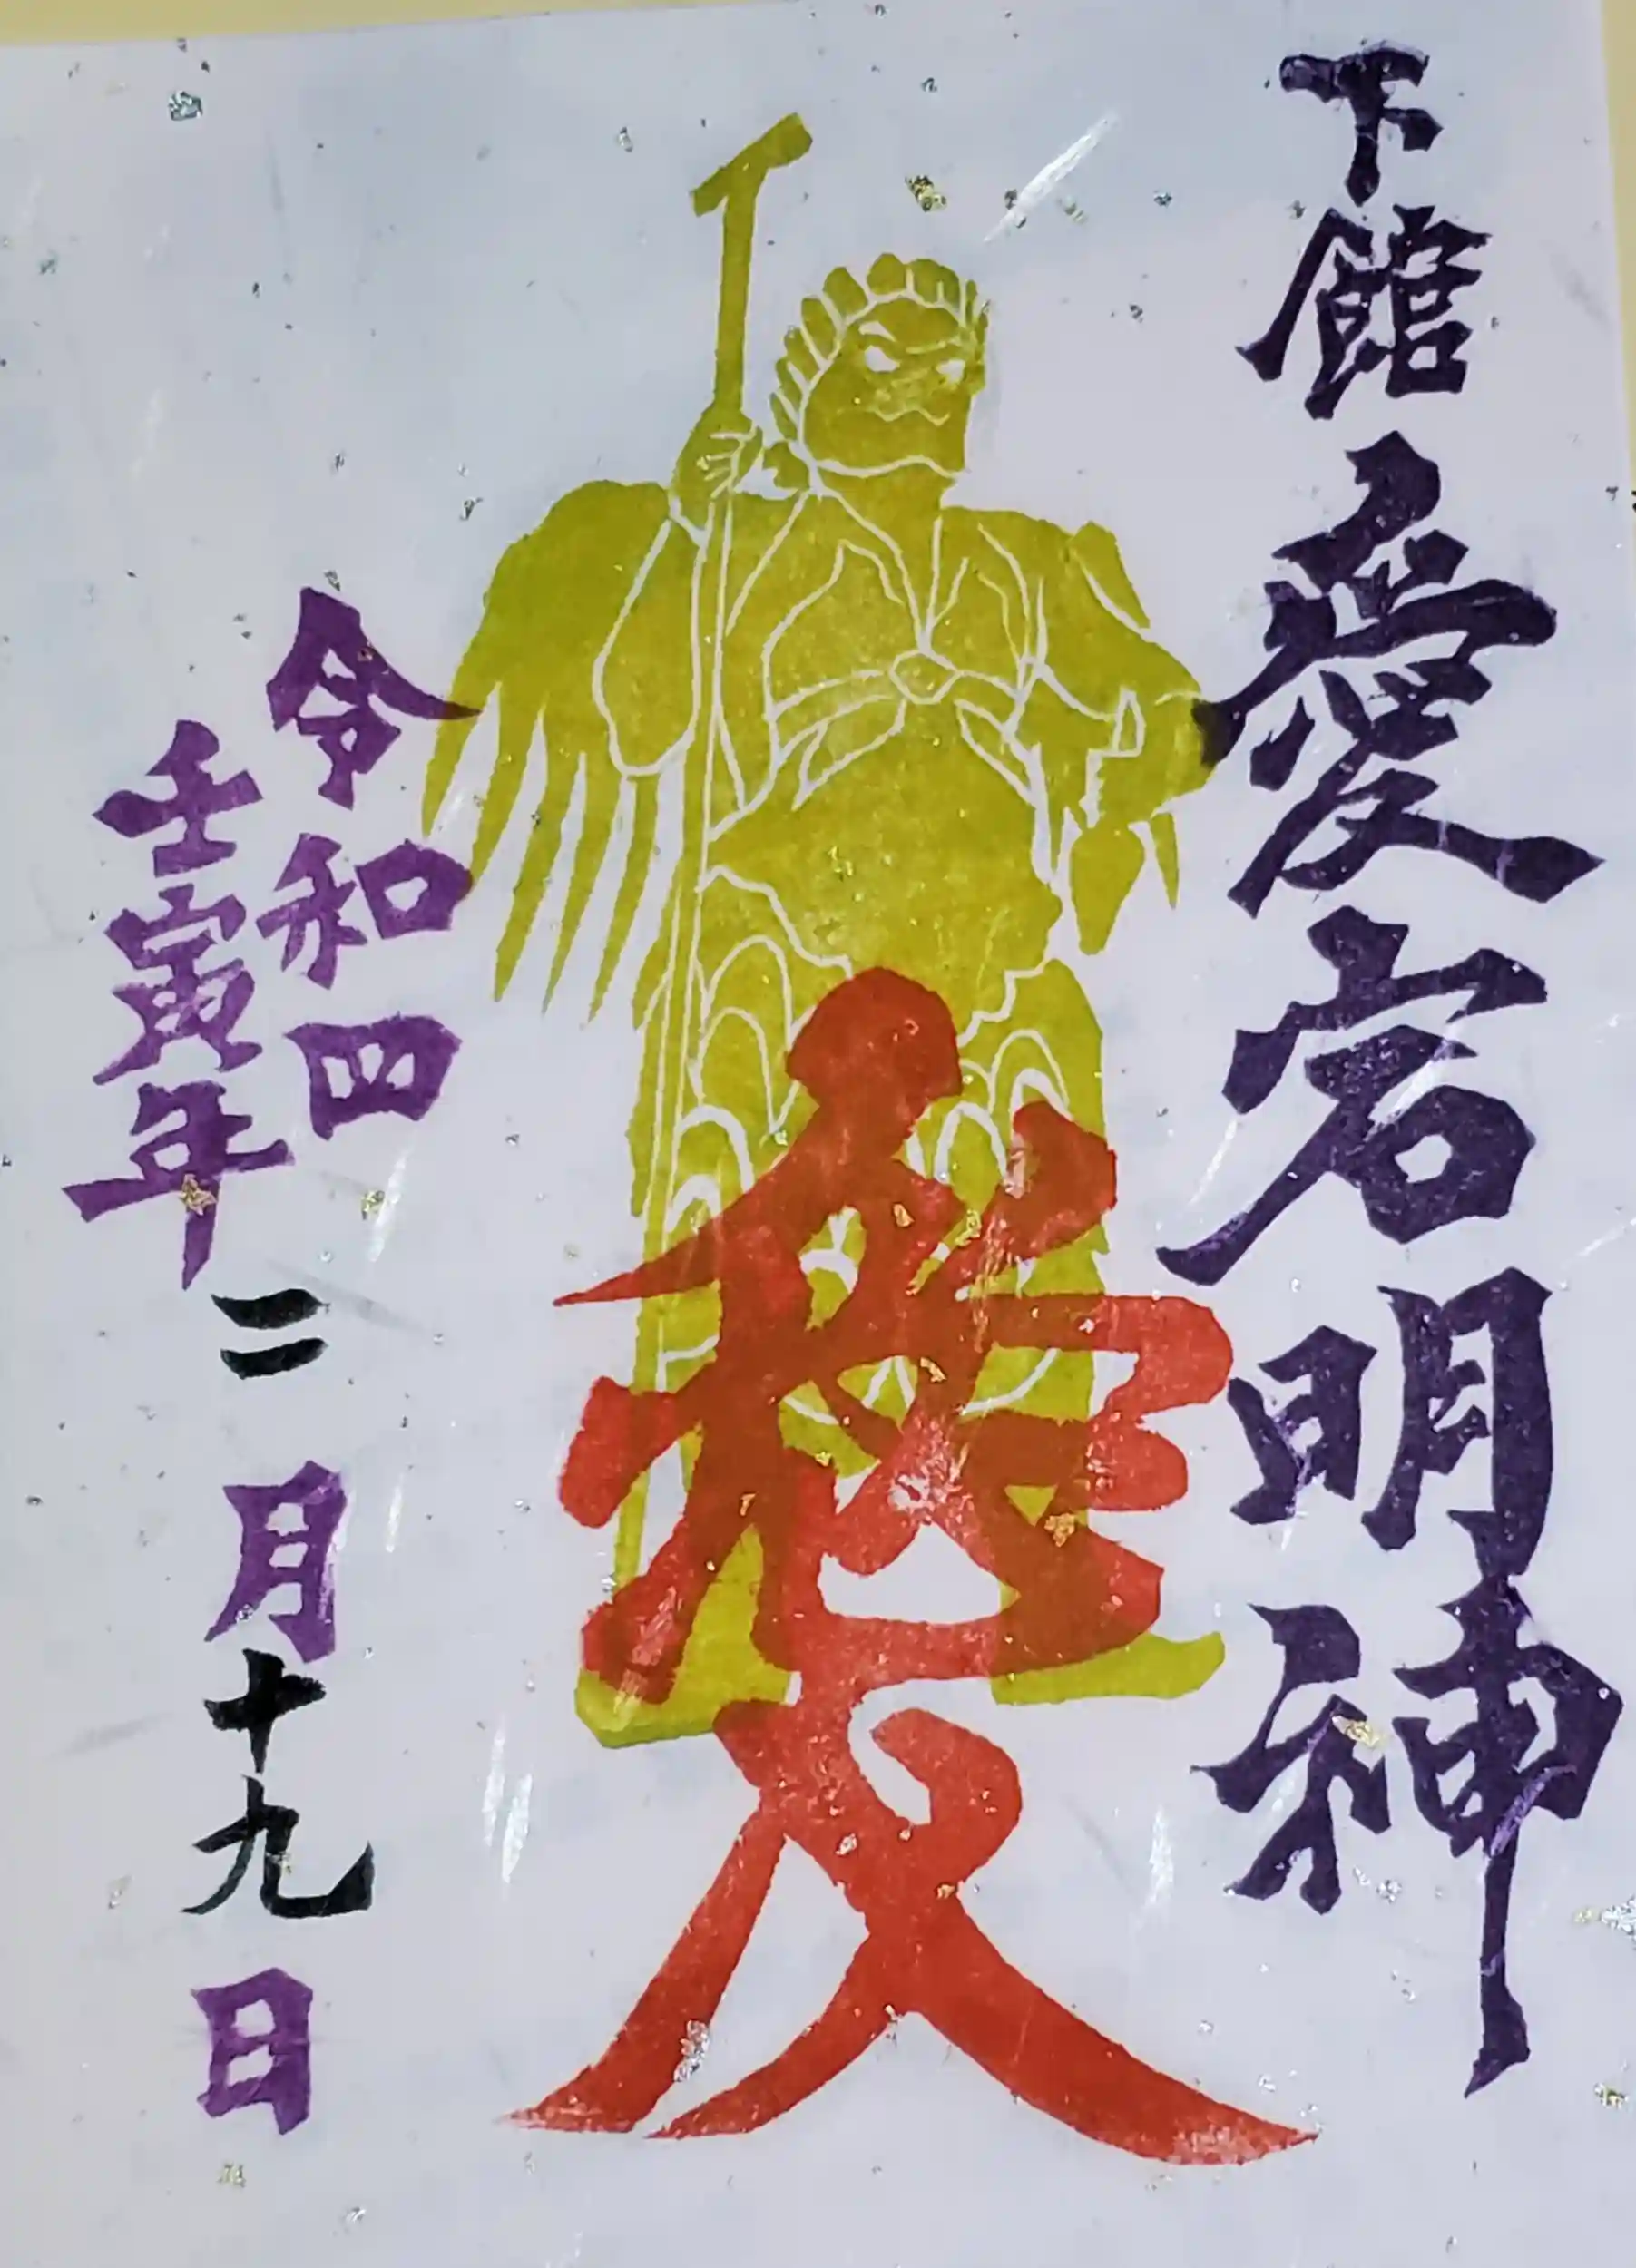 下館愛宕明神
愛
令和四
壬寅年
二月十九日